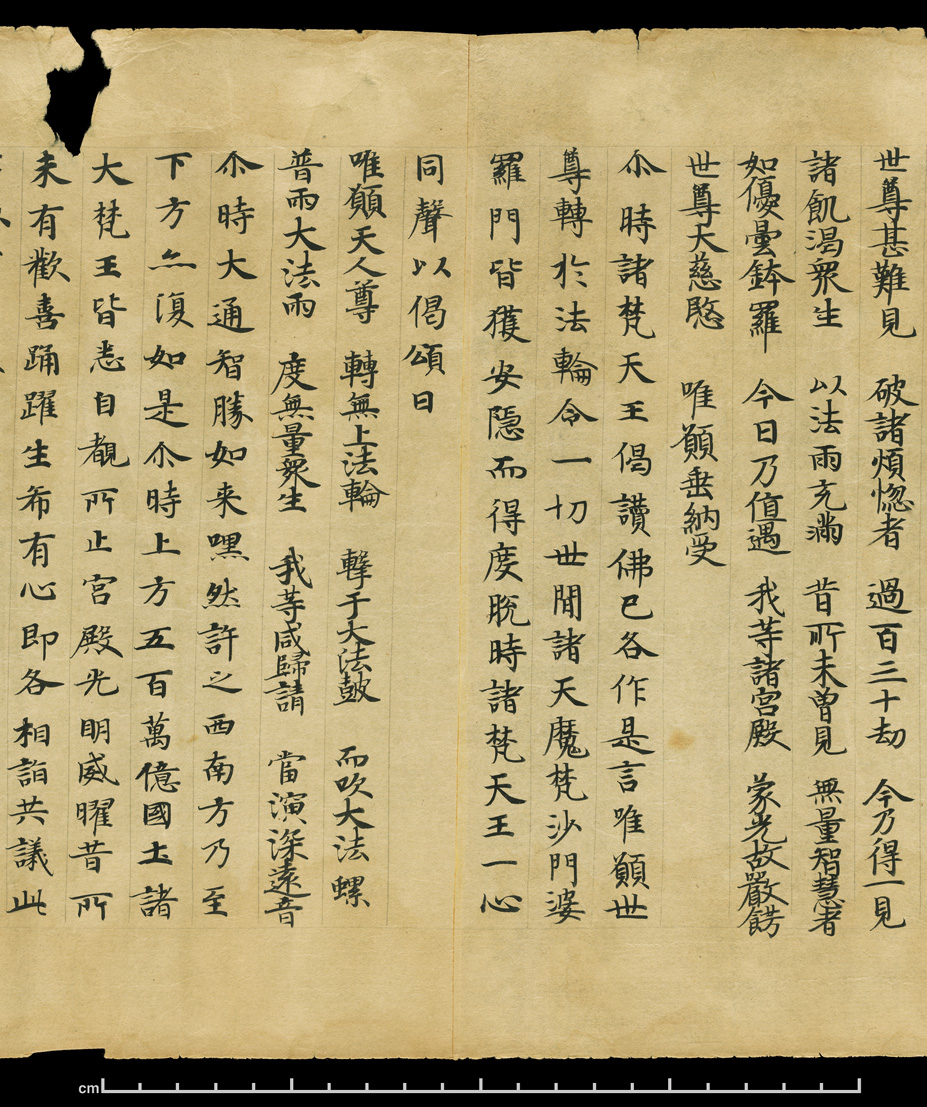 世尊甚難見　破諸煩惚者　過百三十劫　今乃得一見
諸飢渴衆生　以法雨充滿　昔所未曾見　無量智慧者
如優曇鉢羅　今日乃值遇　我等諸宮殿　蒙光故嚴餝
世尊大慈愍　唯願垂納受
尒時諸梵天王偈讚佛已各作是言唯願世
尊轉於法輪令一切世間諸天魔梵沙門婆
羅門皆獲安隱而得度脫時諸梵天王一心
同聲以偈頌曰
唯願天人尊　轉無上法輪　擊于大法皷　而吹大法螺
普雨大法雨　度無量衆生　我等咸歸請　當演深遠音
尒時大通智勝如来嘿然許之西南方乃至
下方亦復如是尒時上方五百萬億國土諸
大梵王皆悉自覩所止宮殿光明威曜昔所
未有歡喜踊躍生希有心即各相詣共議此